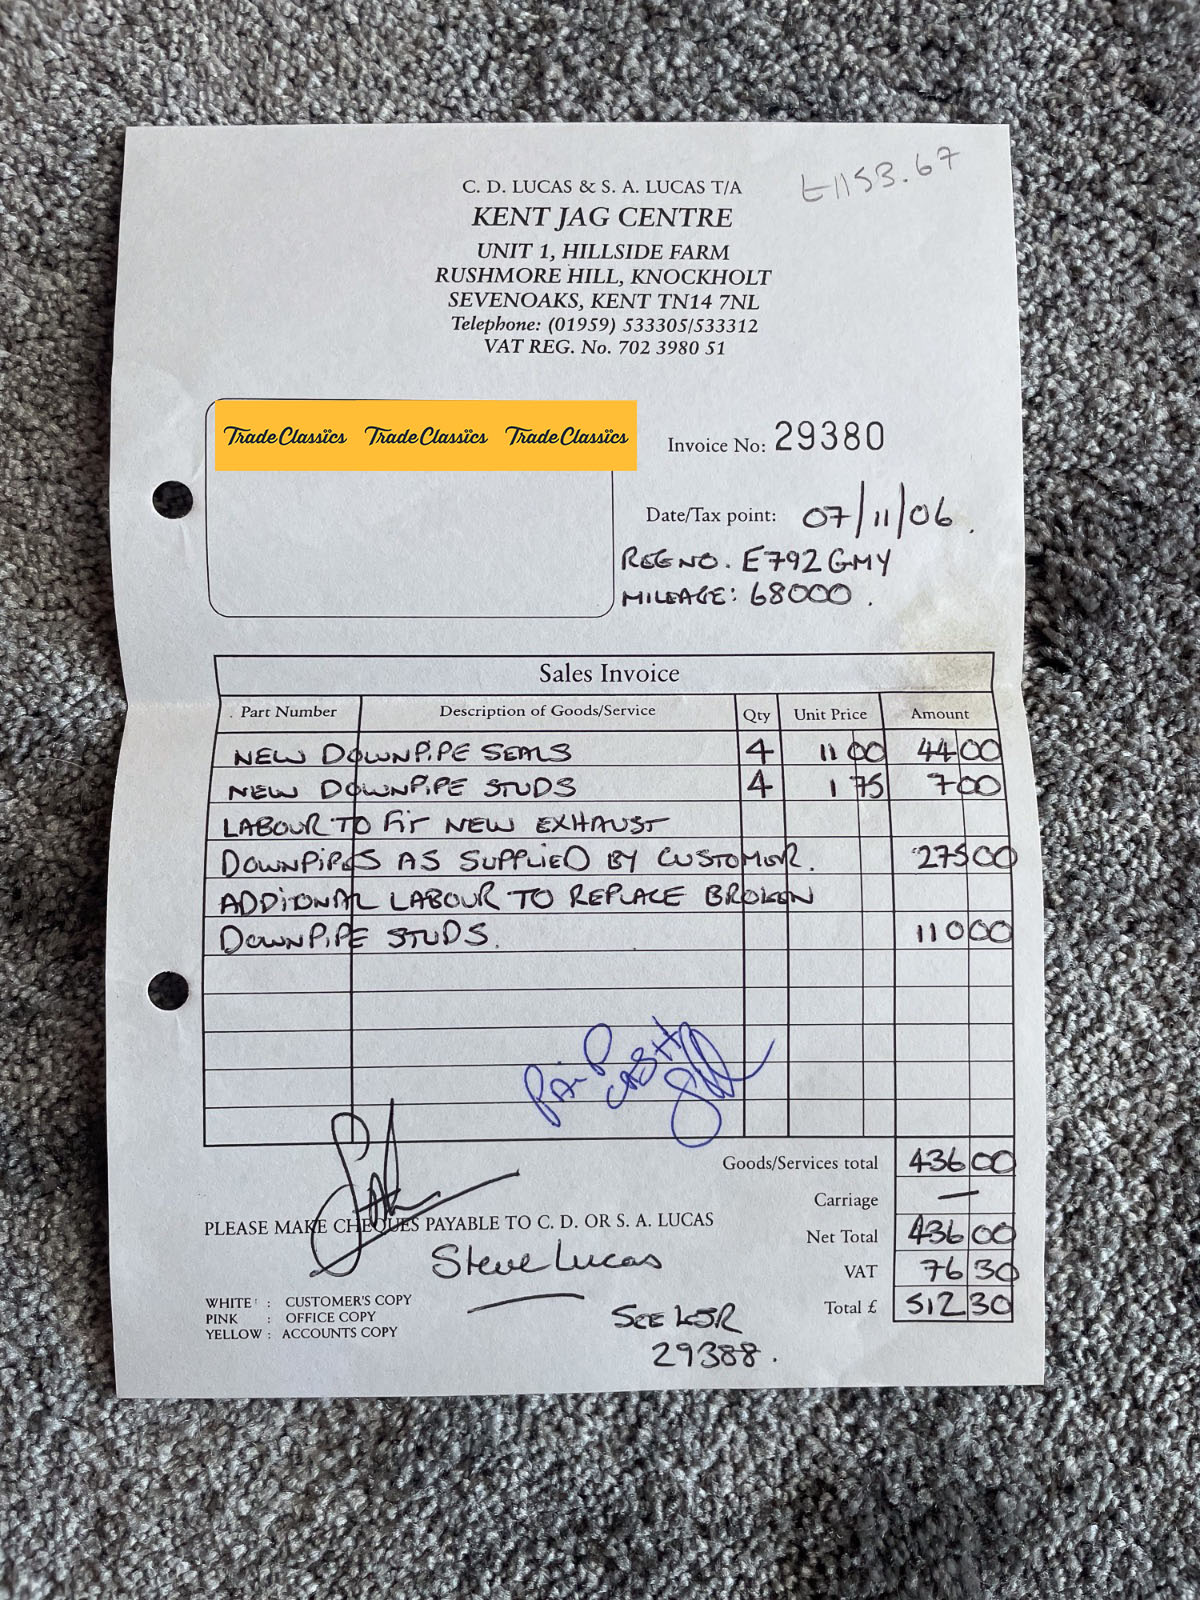 £1153.67
C. D. LUCAS & S. A. LUCAS T/A
KENT JAG CENTRE
UNIT 1, HILLSIDE FARM
RUSHMORE HILL, KNOCKHOLT
SEVENOAKS, KENT TN14 7NL
Telephone: (01959) 533305/533312
VAT REG. No. 702 3980 51
TradeClassics TradeClassics TradeClassics
Invoice No: 29380
Date/Tax point: 07/11/06.
REG NO. E792 GMY
MILEAGE: 68000.
Sales Invoice
Part Number Description of Goods/Service Qty Unit Price Amount
NEW DOWNPIPE SEALS 4 11 00 44 00
NEW DOWNPIPE STUDS 4 1 75 7 00
LABOUR TO FIT NEW EXHAUST
DOWNPIPES AS SUPPLIED BY CUSTOMER. 275 00
ADDITIONAL LABOUR TO REPLACE BROKEN
DOWNPIPE STUDS. 110 00
PAID
CASH
Goods/Services total 436 00
Carriage —
PLEASE MAKE CHEQUES PAYABLE TO C. D. OR S. A. LUCAS
Net Total 436 00
Steve Lucas
VAT 76 30
Total £ 512 30
WHITE : CUSTOMER'S COPY
PINK : OFFICE COPY
YELLOW : ACCOUNTS COPY
SEE
29388.